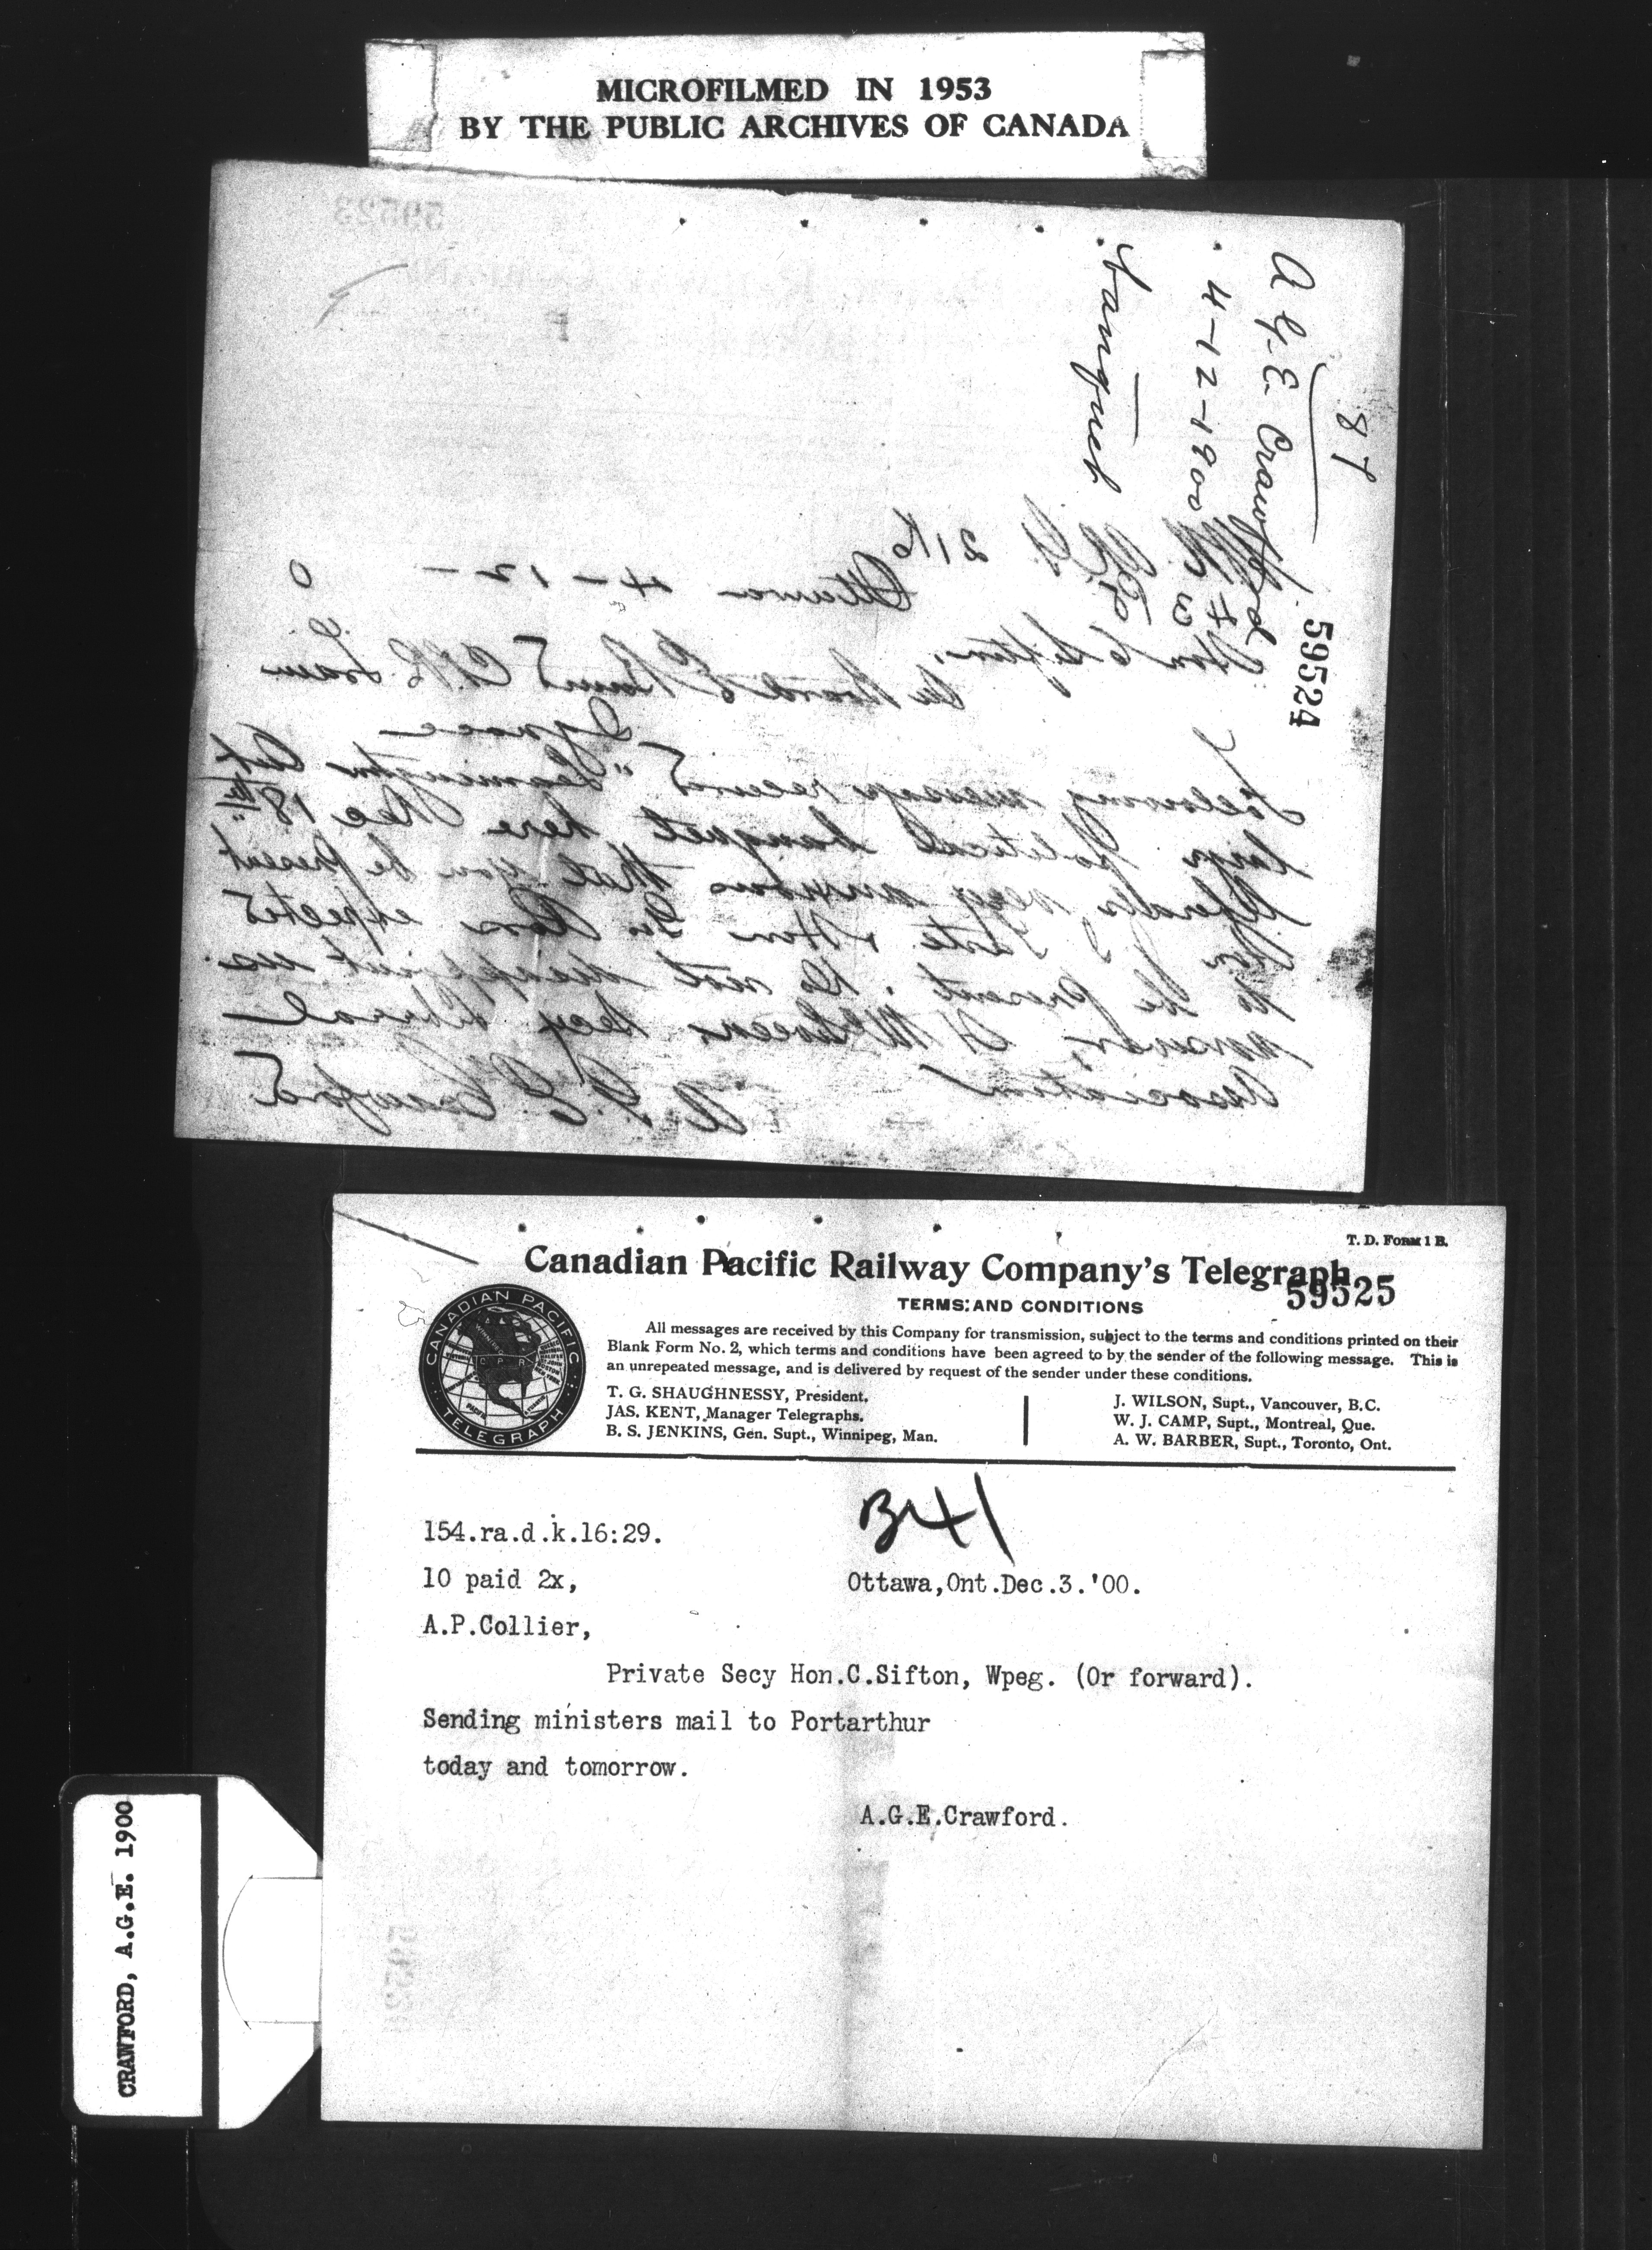 MICROFILMED IN 1953
BY THE PUBLIC ARCHIVES OF CANADA
59523
87
A.G.E. Crawford
4-12-1900
banquet
59524
Ottawa 4-12-
Hon C Sifton,
On board E Bound C.P.R. Train
Ignace
Following message received "Leamington Ont
large political banquet here Dec 18th
liberals very anxious that you be present
Hon J Tarte & Hon Ross expected
to be present. Do not disappoint us.
answer, McSween, Secy Liberal
Association
A. G. E. Crawford
T. D. Form 1 B.
Canadian Pacific Railway Company's Telegraph
59525
TERMS AND CONDITIONS
All messages are received by this Company for transmission, subject to the terms and conditions printed on their
Blank Form No. 2, which terms and conditions have been agreed to by the sender of the following message. This is
an unrepeated message, and is delivered by request of the sender under these conditions.
T. G. SHAUGHNESSY, President.
JAS. KENT, Manager Telegraphs.
B. S. JENKINS, Gen. Supt., Winnipeg, Man.
J. WILSON, Supt., Vancouver, B.C.
W. J. CAMP, Supt., Montreal, Que.
A. W. BARBER, Supt., Toronto, Ont.
CANADIAN PACIFIC
TELEGRAPH
B41
154.ra.d.k.16:29.
10 paid 2x,
Ottawa,Ont.Dec.3.'00.
A.P.Collier,
Private Secy Hon.C.Sifton, Wpeg. (Or forward).
Sending ministers mail to Portarthur
today and tomorrow.
A.G.E.Crawford.
CRAWFORD, A.G.E. 1900